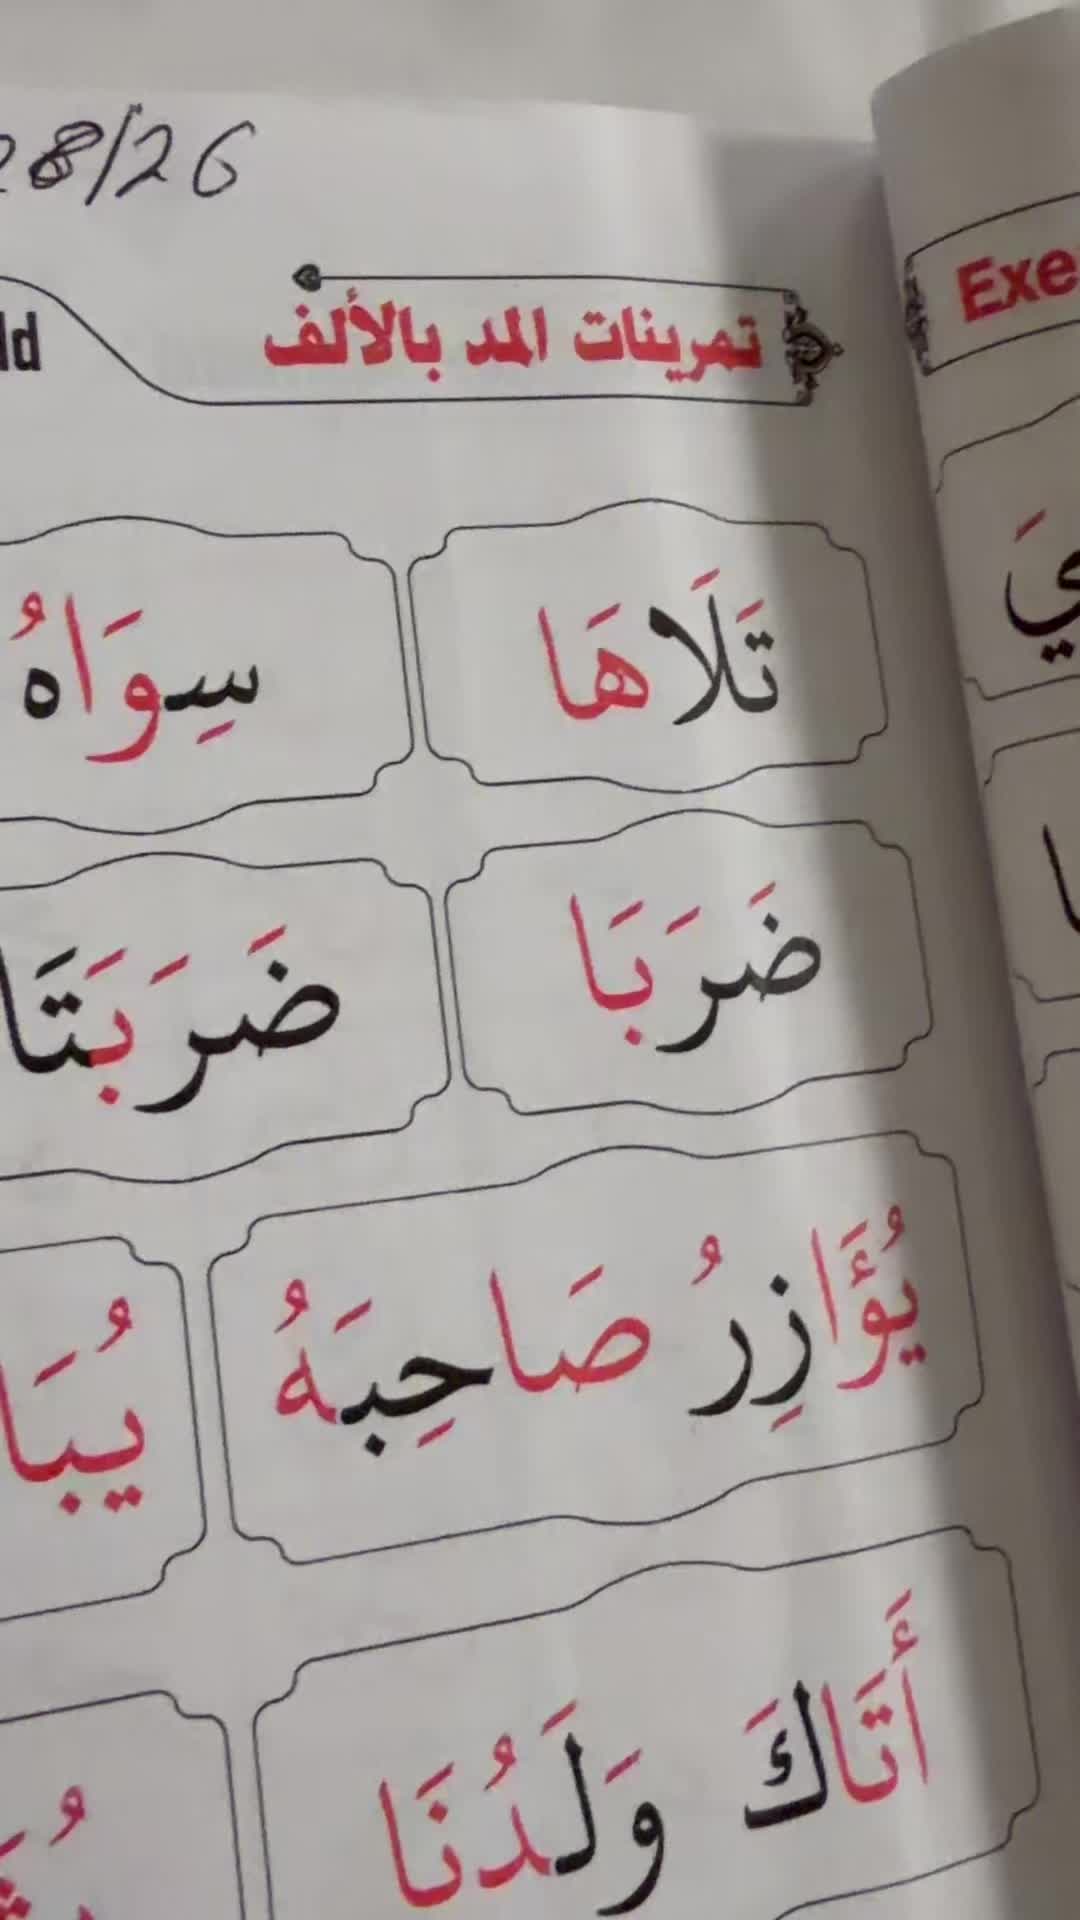 28/26
تمرينات المد بالألف
تَلَاهَا سِوَاهُ
ضَرَبَا ضَرَبَتَا
يُؤَازِرُ صَاحِبَهُ
أَتَاكَ وَلَدُنَا